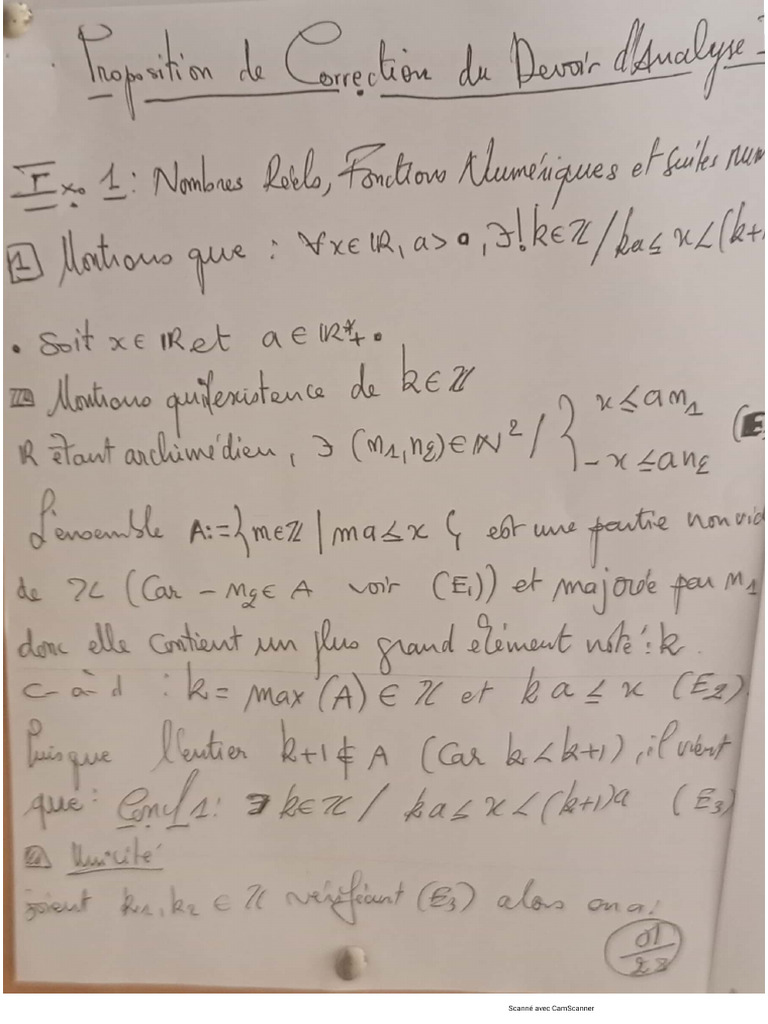 Proposition de Correction du Devoir d'Analyse
Ex. 1: Nombres Réels, Fonctions Numériques et suites num
1 Montrons que : ∀x∈ℝ, a>0, ∃!k∈ℤ/ka≤x<(k+
• Soit x∈ℝ et a∈ℝ*₊.
Montrons l'existence de k∈ℤ
ℝ étant archimédien, ∃ (n₁,n₂)∈ℕ² / { x≤an₁
-x≤an₂
L'ensemble A:={m∈ℤ | ma≤x} est une partie non vid
de ℤ (Car -n₂∈A voir (E₁)) et majorée par n₁
donc elle contient un plus grand élément noté : k.
c-à-d : k = max(A)∈ℤ et ka≤x (E₂)
Puisque l'entier k+1∉A (Car k<k+1), il vient
que: Concl 1: ∃k∈ℤ/ ka≤x<(k+1)a (E₃)
Unicité
Soient k₁,k₂∈ℤ vérifiant (E₃) alors on a:
01
Scanné avec CamScanner